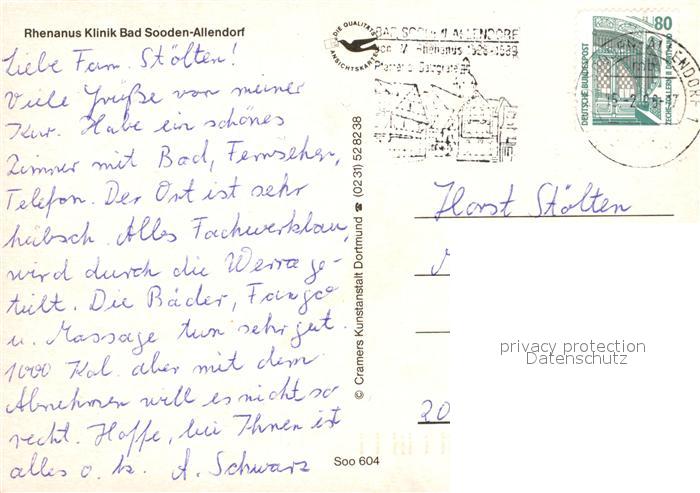 Rhenanus Klinik Bad Sooden-Allendorf
Liebe Fam. Stölten!
Viele Grüße von meiner
Kur. Habe ein schönes
Zimmer mit Bad, Fernsehen,
Telefon. Der Ort ist sehr
hübsch. Alles Fachwerkbau,
wird durch die Werra ge-
teilt. Die Bäder, Fango
u. Massage tun sehr gut.
1000 Kal. aber mit dem
Abnehmen will es nicht so
recht. Hoffe, bei Ihnen ist
alles o. k. A. Schwarz
DIE QUALITÄTS
ANSICHTSKARTE
© Cramers Kunstanstalt Dortmund ☎ (0231) 528238
Soo 604
BAD SOODEN-ALLENDORF
Rhenanus
80
DEUTSCHE BUNDESPOST
ZECHE ZOLLERN II DORTMUND
Horst Stölten
20
privacy protection
Datenschutz